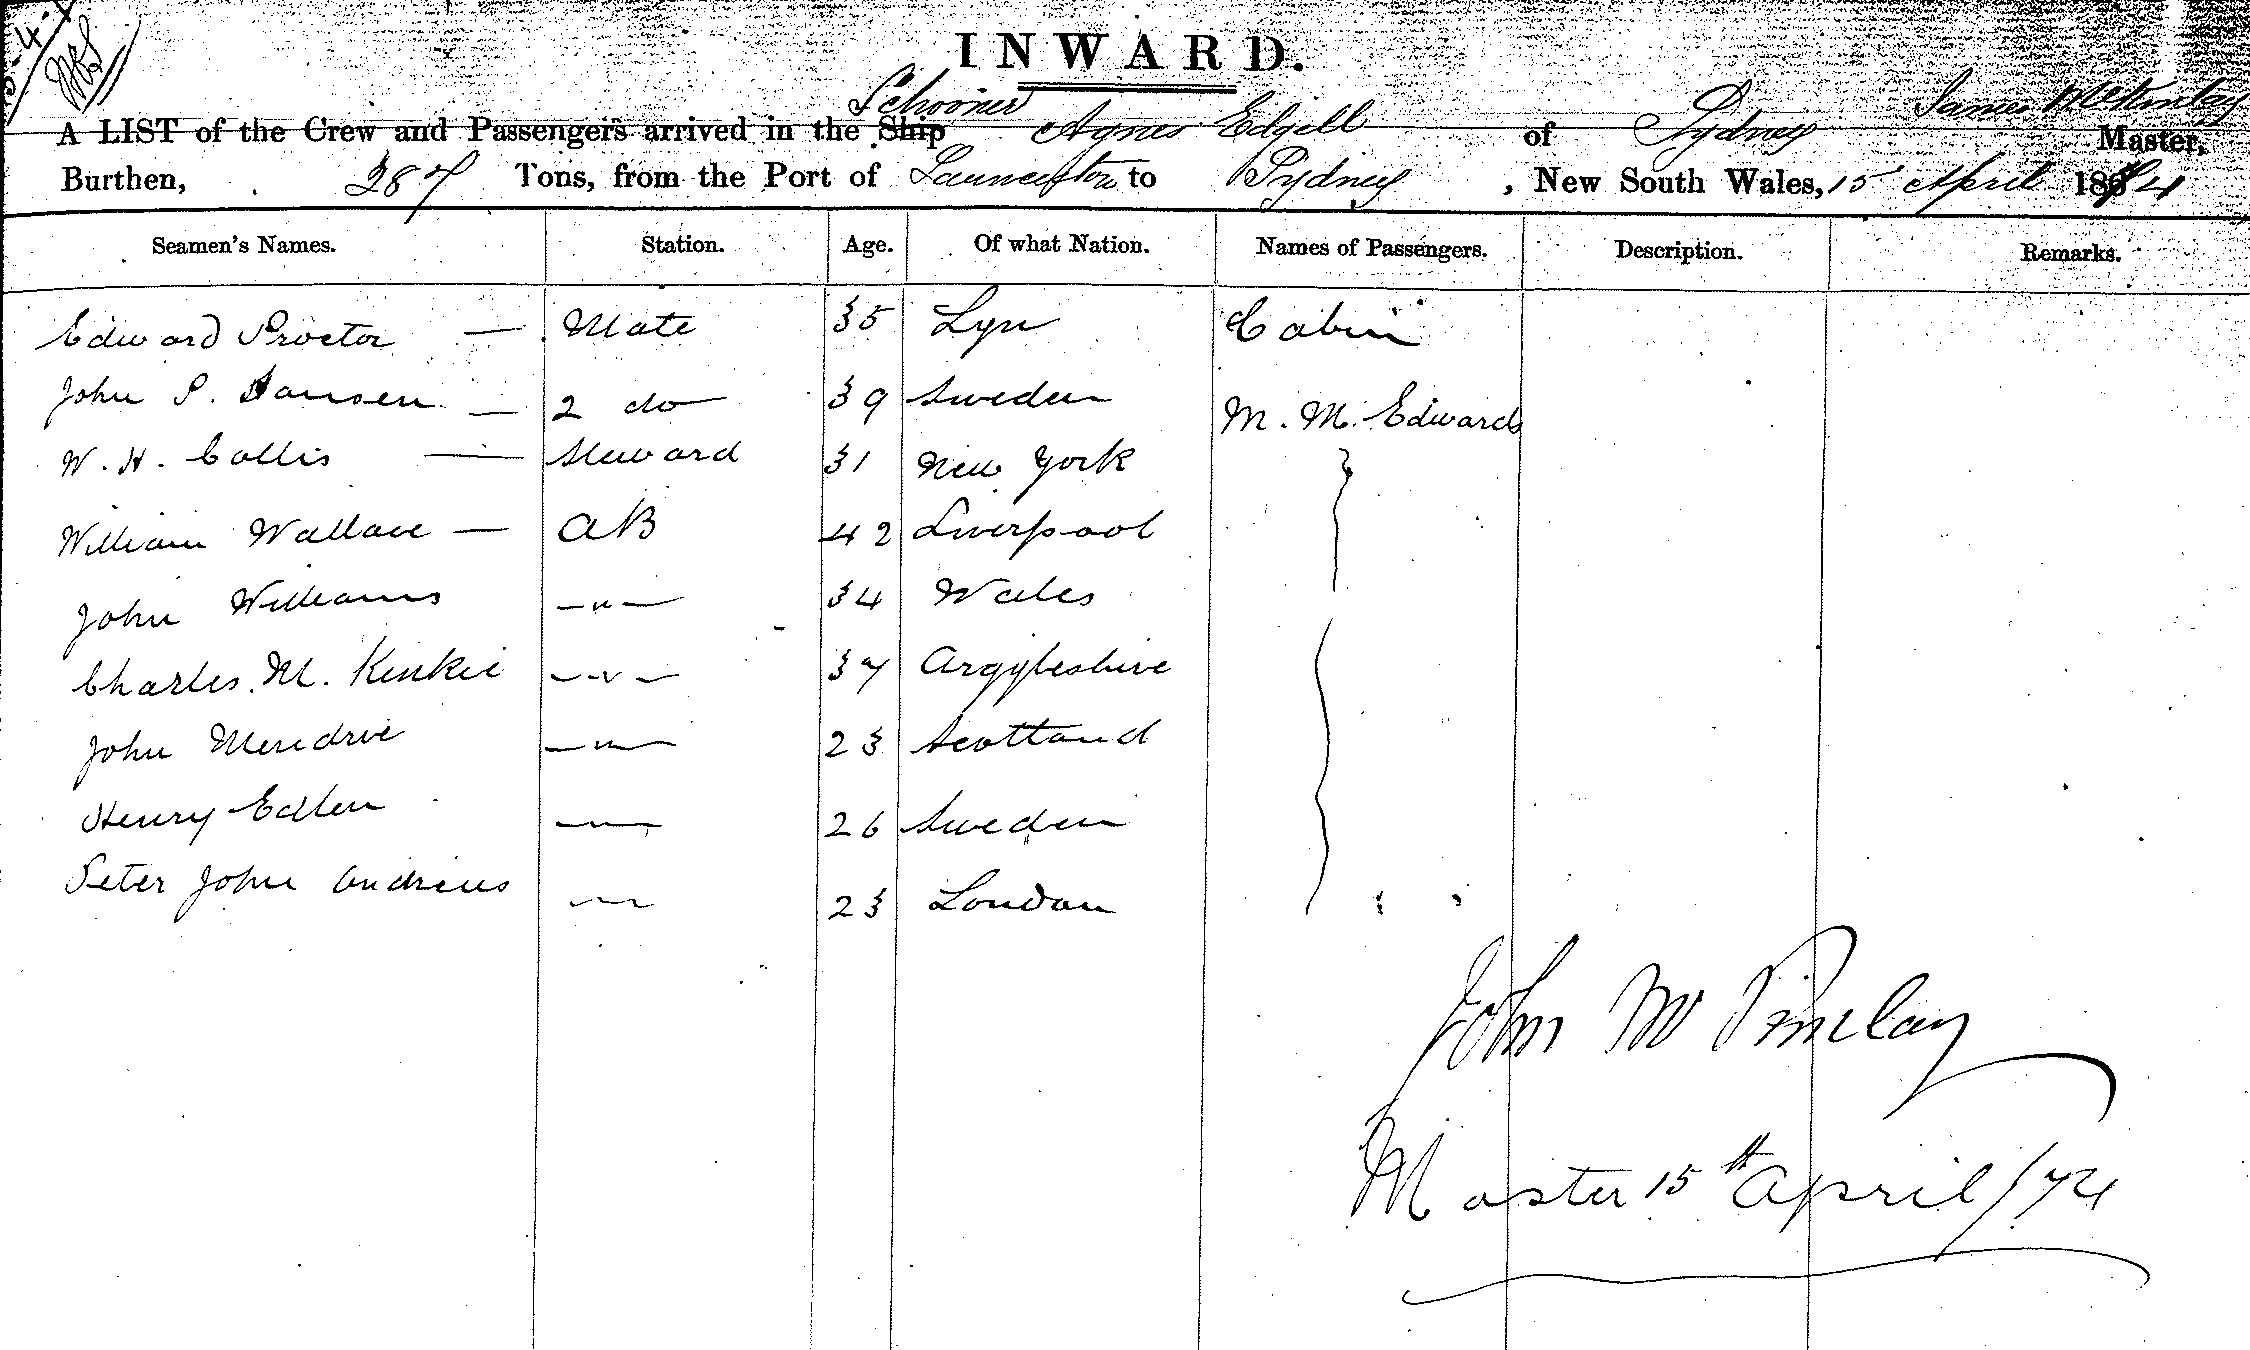 INWARD.
A LIST of the Crew and Passengers arrived in the Ship Schooner Agnes Edgell of Sydney James Master,
Burthen, 287 Tons, from the Port of Launceston to Sydney, New South Wales, 15 April 1874
Seamen's Names. Station. Age. Of what Nation. Names of Passengers. Description. Remarks.
Edward Proctor — Mate 35 Lyn Cabin
John P. Hansen — 2 do 39 Sweden M. M. Edwards
W. H. Collis — Steward 31 New York
William Wallace — AB 42 Liverpool
John Williams —"— 34 Wales
Charles. M. —"— 37 Argyleshire
John —"— 23 Scotland
Henry Edlen —"— 26 Sweden
Peter John Andrews —"— 23 London
John
Master 15th April/74